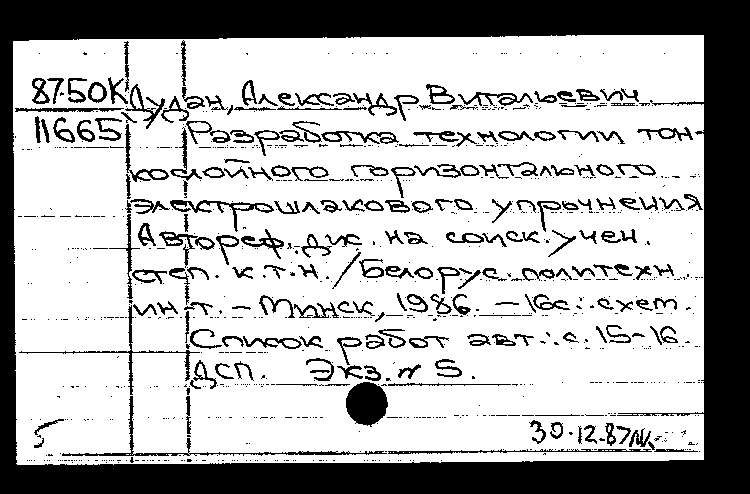 87-50К Дудан, Александр Витальевич.
11665 Разработка технологии тон-
кослойного горизонтального
электрошлакового упрочнения
Автореф. дис. на соиск. учен.
степ. к.т.н. / Белорус. политехн.
ин-т. - Минск, 1986. - 16с.: схем.
Список работ авт.: с. 15-16.
ДСП. Экз. № 5.
5 30.12.87